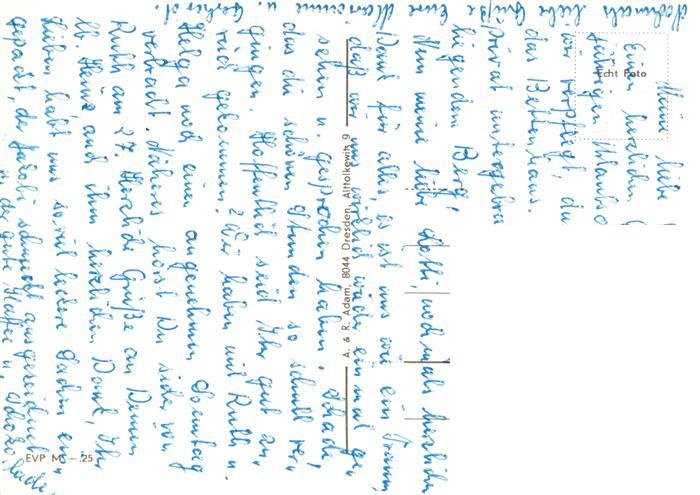 Meine liebe
Einen herzlichen
wir verpflegt, die
das Bettenhaus.
Privat untergebra
liegendem Berg!
Nun meine liebe Hotti, nochmals herzlichen
Dank für alles, es ist uns wie ein Traum,
daß wir uns wirklich wieder einmal ge-
sehen u. gesprochen haben. Schade
das die schönen Stunden so schnell ver-
gingen. Hoffentlich seid Ihr gut zu-
rück gekommen? Wir haben mit Ruth u.
Helga noch einen angenehmen Sonntag
verbracht. Näheres hörst Du sicher von
Ruth am 27. Herzliche Grüße an Deinen
lb. Heinz und ihm herzlichen Dank, Ihr
Lieben habt uns so viel leckere Sachen ein-
gepackt, der schmeckt ausgezeichnet
u. der gute Kaffee u. Schokolade
Nochmals liebe Grüße Eure Marianne u. Gerhard.
Echt Foto
A. & R. Adam, 8044 Dresden, Alttolkewitz 9
EVP M —.25